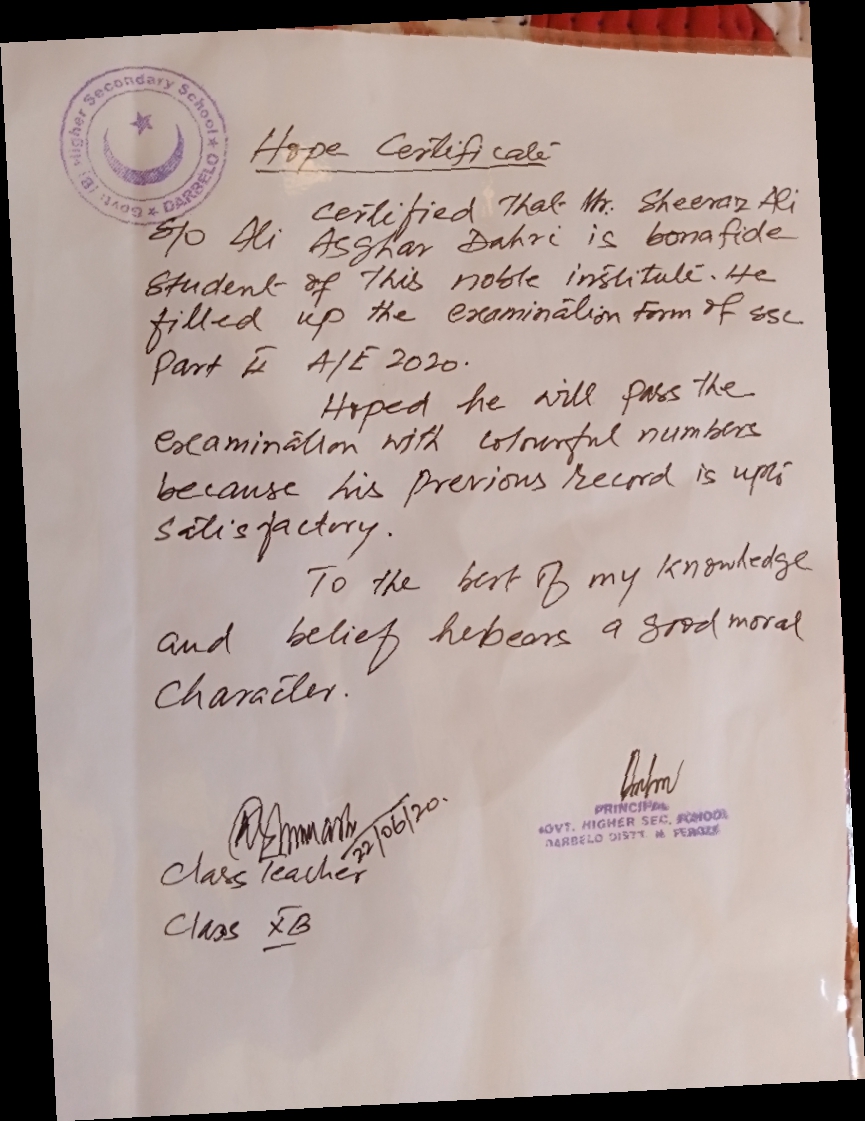 Govt: (B) Higher Secondary School ★ DARBELO ★
Hope Certificate
Certified That Mr. Sheeraz Ali
S/O Ali Asghar Dahri is bonafide
student of This noble institute. He
filled up the examination form of SSC
Part II A/E 2020.
Hoped he will pass the
examination with colourful numbers
because his previous record is upto
satisfactory.
To the best of my knowledge
and belief he bears a good moral
Character.
22/06/20.
Class Teacher
Class XB
PRINCIPAL
GOVT. HIGHER SEC. SCHOOL
DARBELO DISTT. N. FEROZE